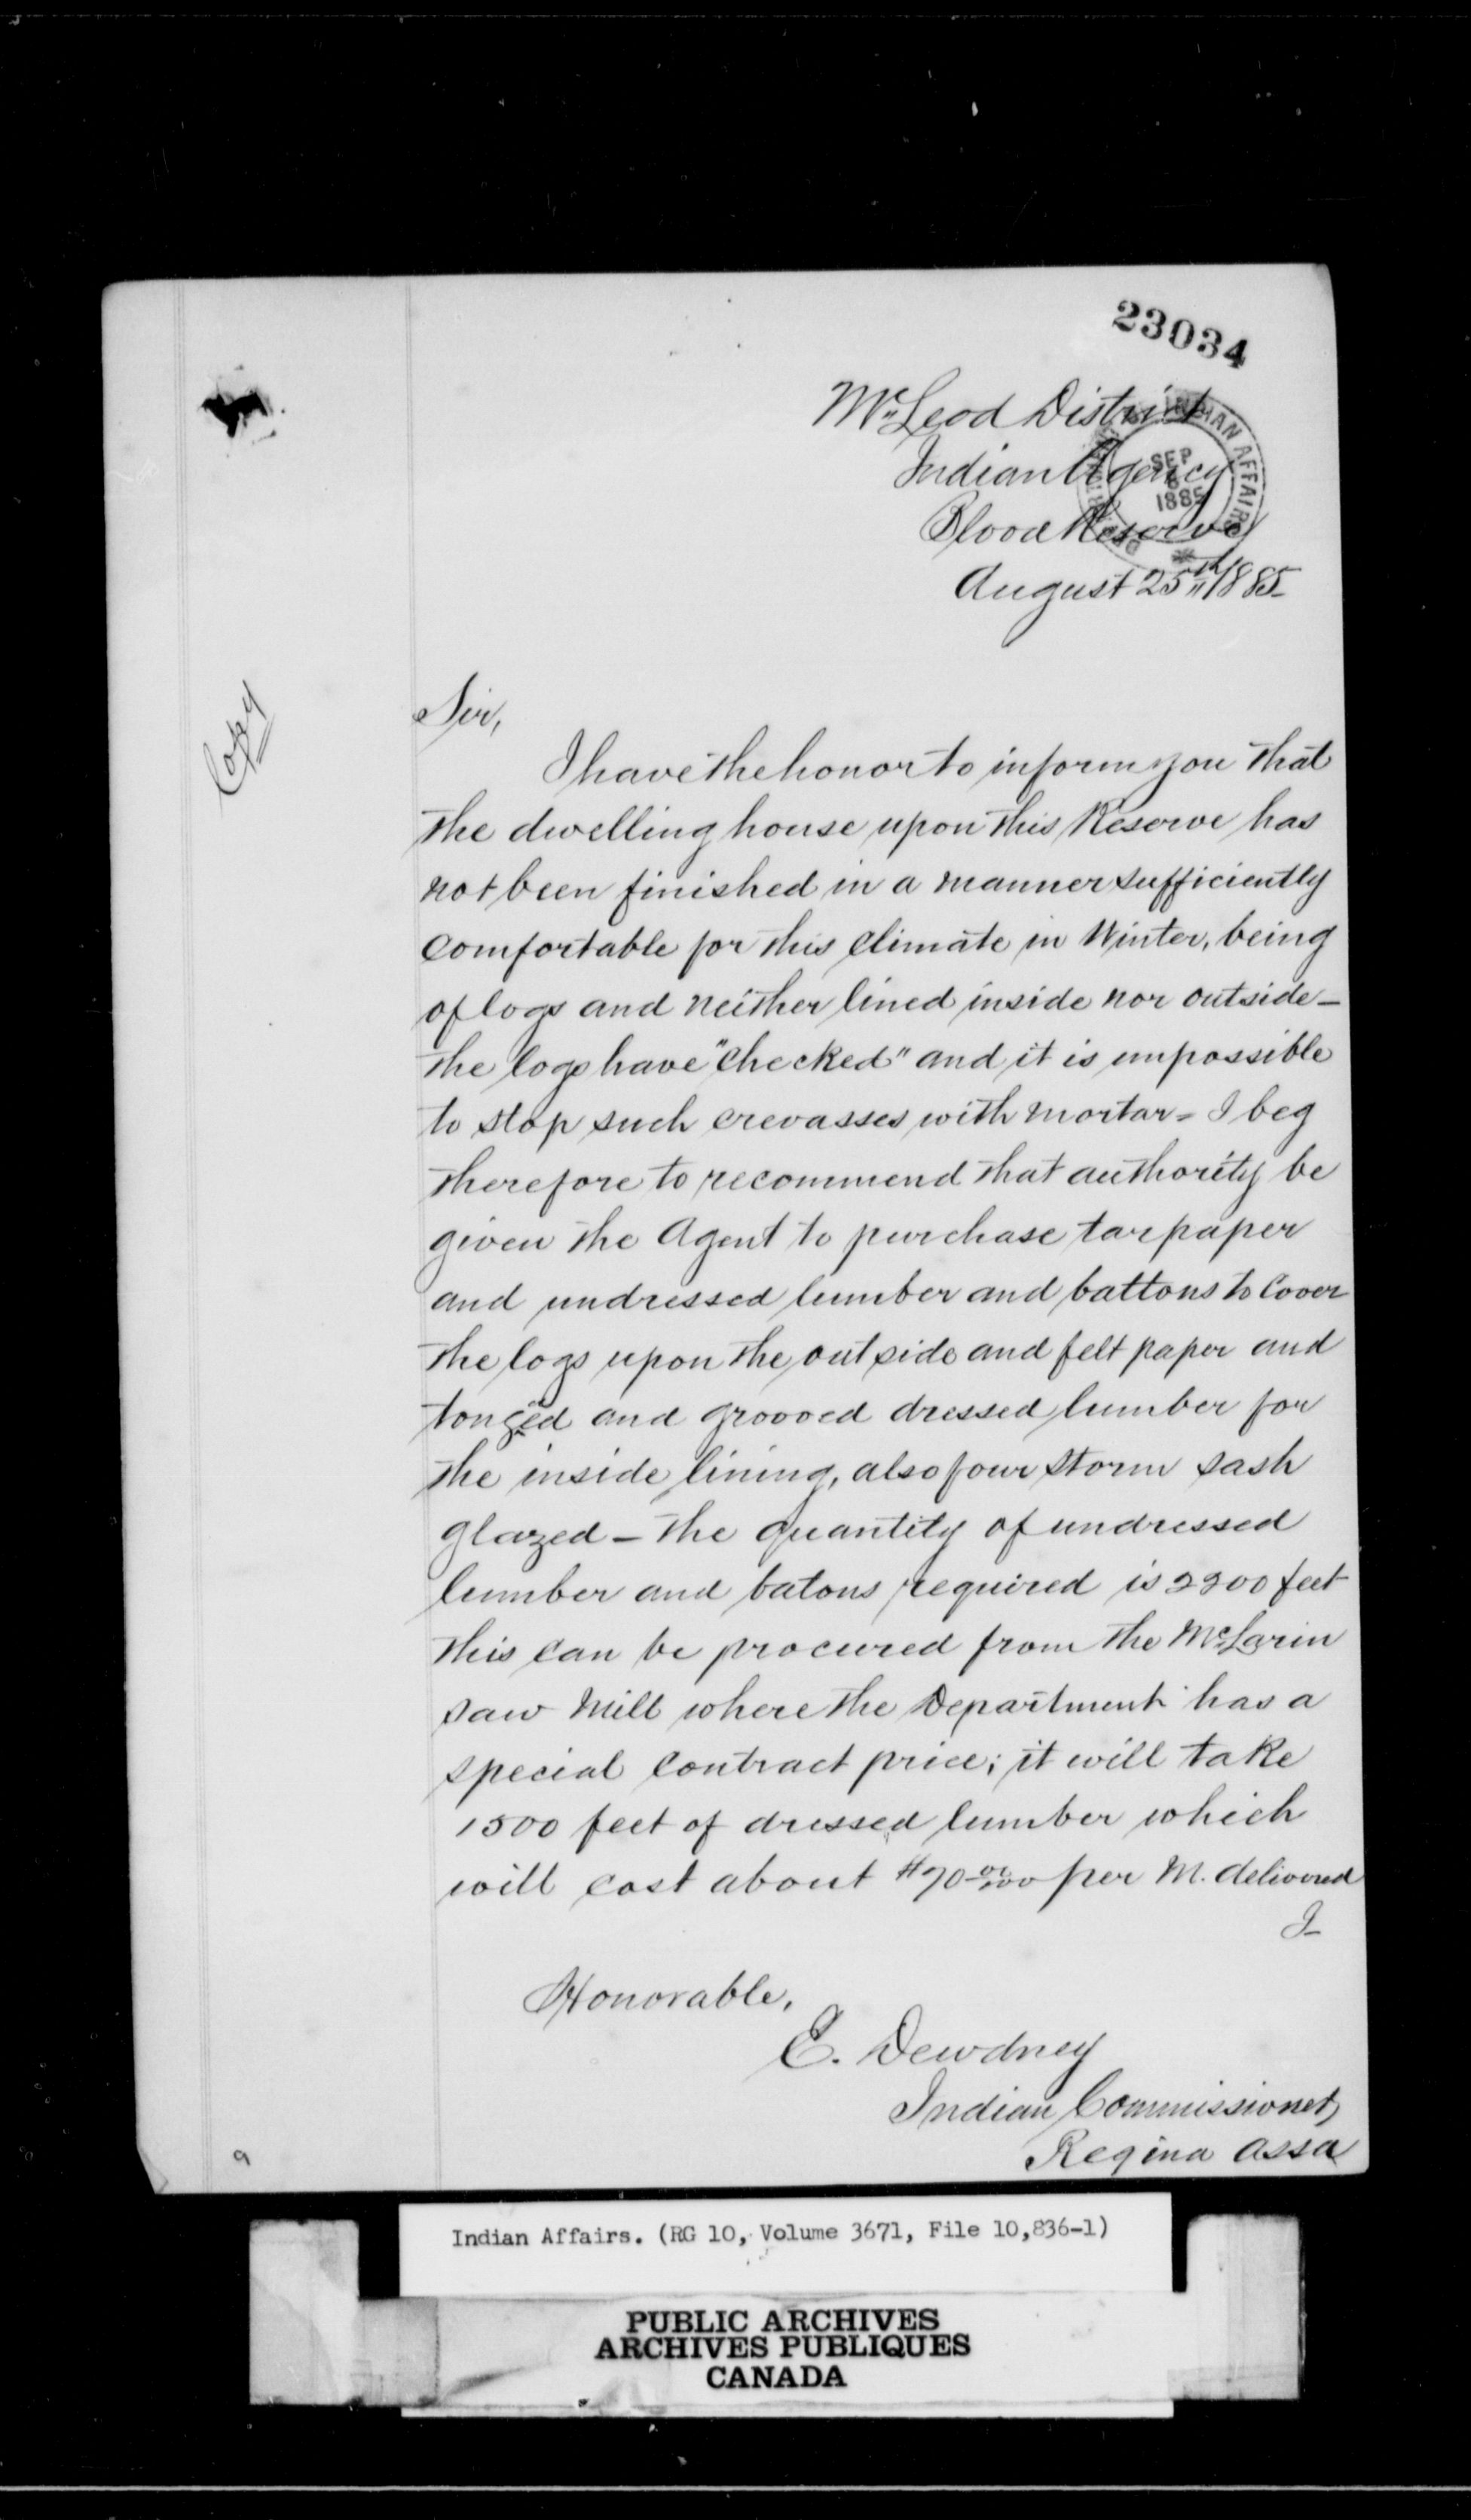 23034
McLeod District
Indian Agency
Blood Reserve
August 25th 1885
INDIAN AFFAIRS
SEP
1885
Copy
Sir,
I have the honor to inform you that
the dwelling house upon this Reserve has
not been finished in a manner sufficiently
comfortable for this climate in Winter, being
of logs and neither lined inside nor outside –
the logs have "checked" and it is impossible
to stop such crevasses with mortar = I beg
therefore to recommend that authority be
given the Agent to purchase tar paper
and undressed lumber and battons to cover
the logs upon the outside and felt paper and
tonged and grooved dressed lumber for
the inside lining, also four storm sash
glazed – the quantity of undressed
lumber and batons required is 2200 feet
this can be procured from the McLarin
saw Mill where the Department has a
special contract price; it will take
1500 feet of dressed lumber which
will cost about $70 00/100 per M. delivered
I –
Honorable,
E. Dewdney
Indian Commissioner,
Regina Assa
9
Indian Affairs. (RG 10, Volume 3671, File 10,836-1)
PUBLIC ARCHIVES
ARCHIVES PUBLIQUES
CANADA